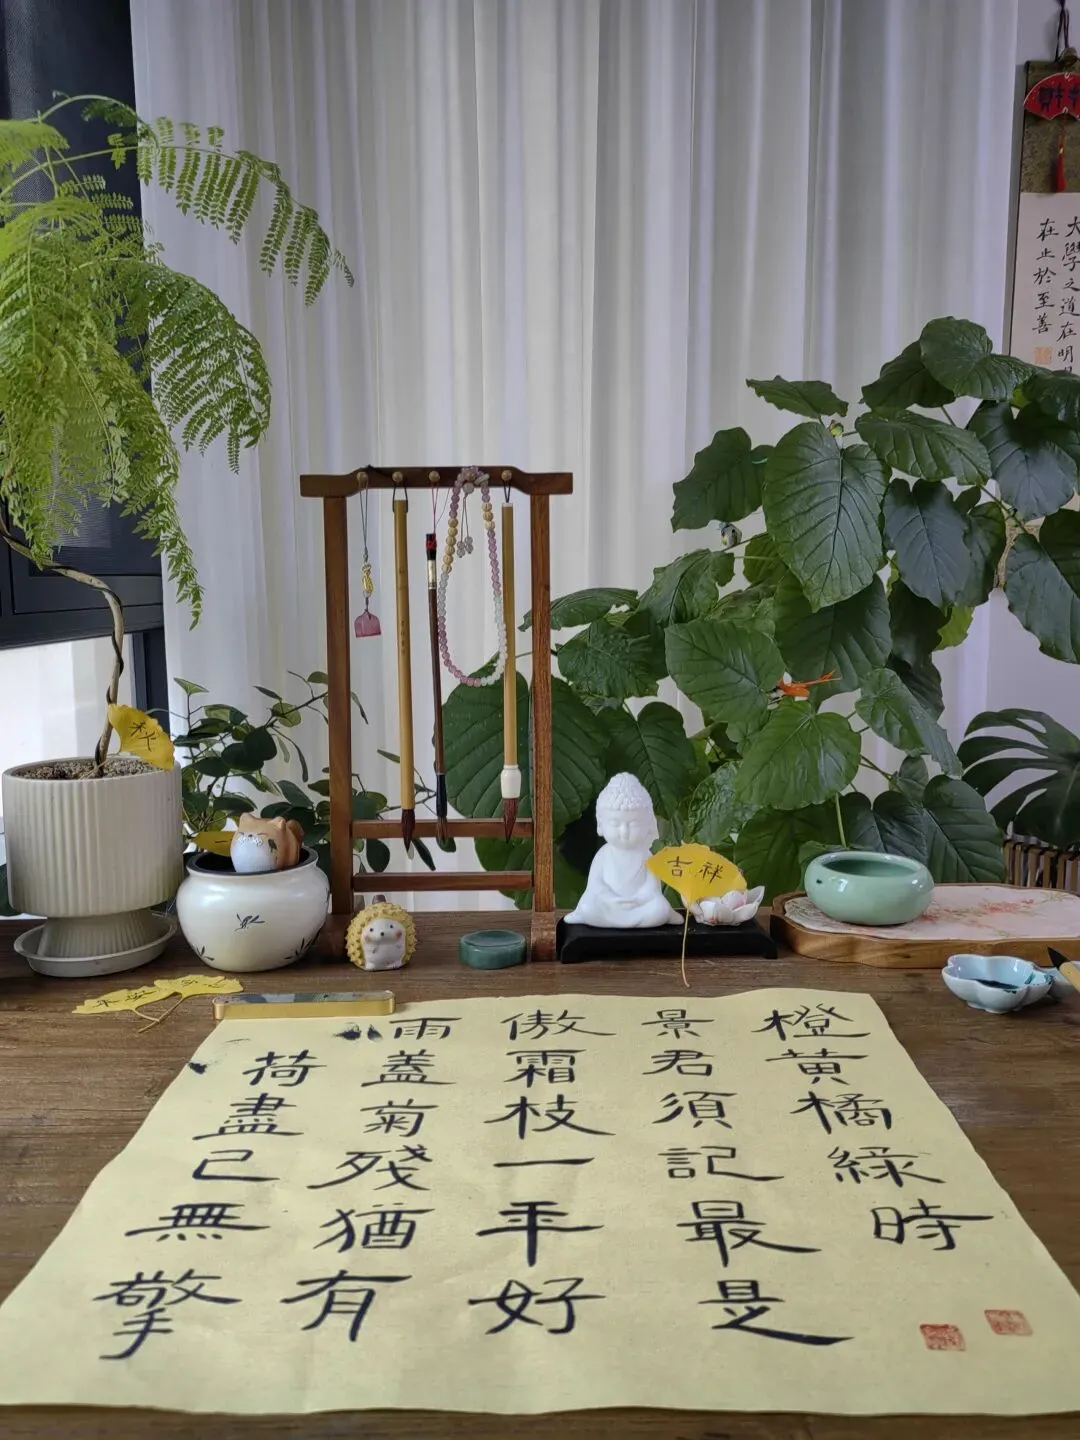 荷盡已無擎
雨蓋菊殘猶有
傲霜枝一年好
景君須記最是
橙黄橘綠時
吉祥
大學之道在明
在止於至善